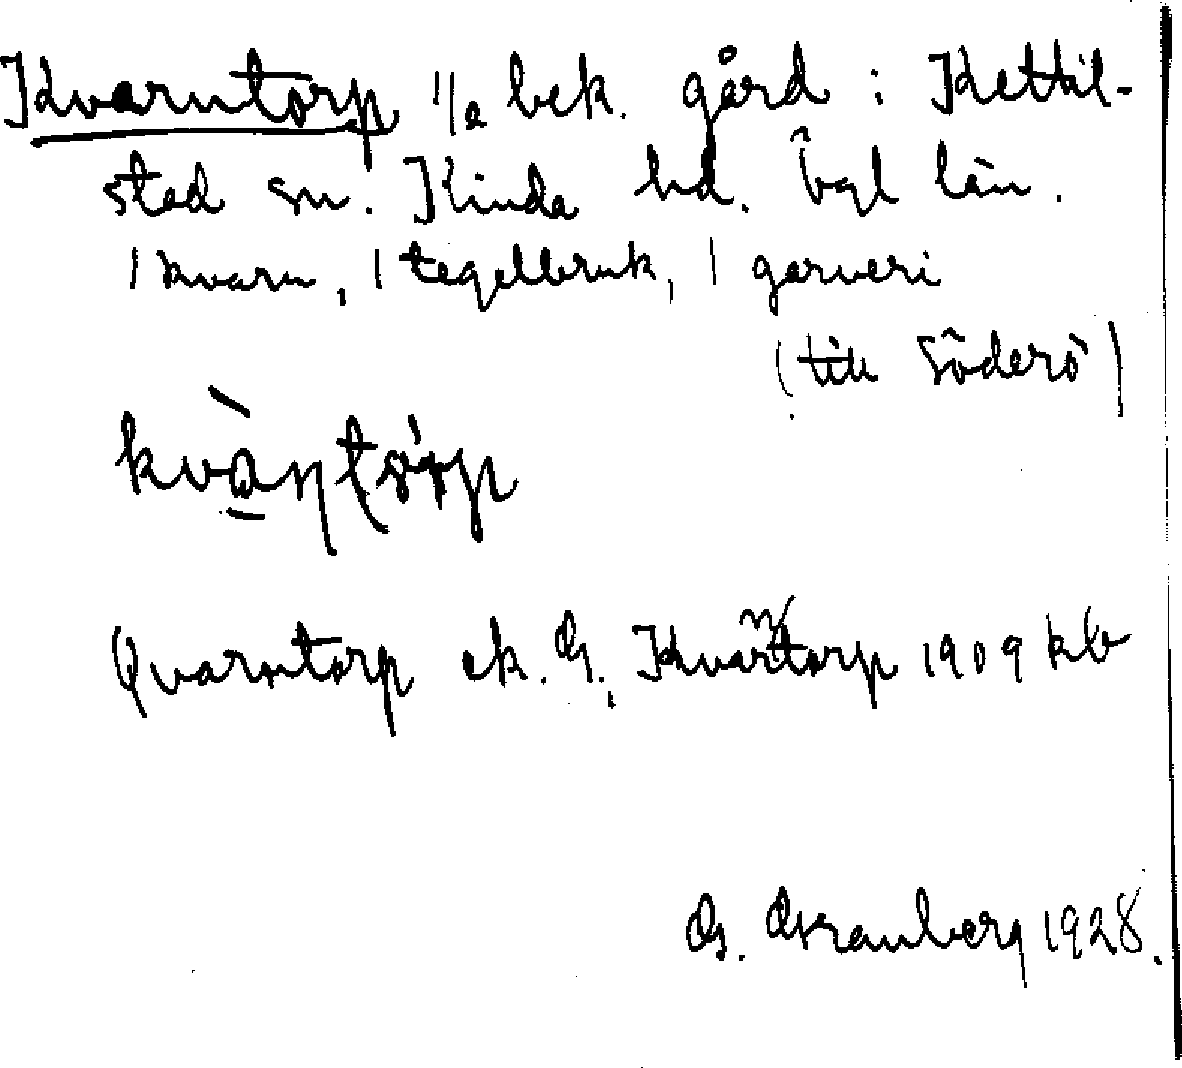 Kvarntorp 1/2 bek. gård i Kettil-
stad sn. Kinda hd. Ögl län.
1 kvarn, 1 tegelbruk, 1 garveri
(till Söderö)
kvàṇtòrp
Qvarntorp ek. G., Kvarntorp 1909 kb
G. Granberg 1928.